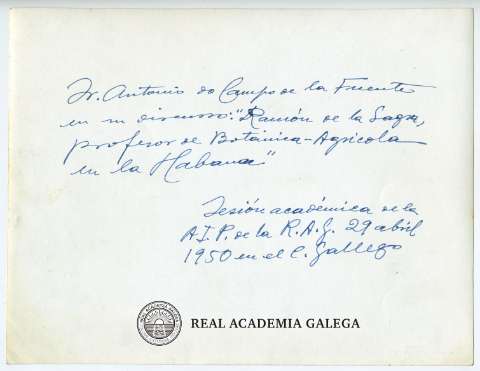 Dr. Antonio do Campo de la Fuente
en su discurso: "Ramón de la Sagra,
profesor de Botánica-Agrícola
en la Habana"
Sesión académica de la
A.I.P. de la R.A.G. 29 abril
1950 en el C. Gallego
REAL ACADEMIA GALEGA